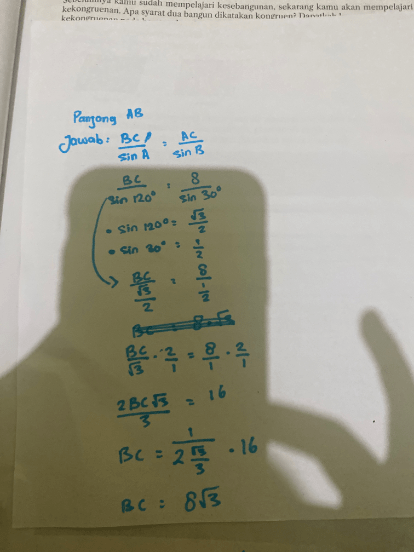 kamu sudah mempelajari kesebangunan, sekarang kamu akan mempelajari
kekongruenan. Apa syarat dua bangun dikatakan kongruen?
Panjang AB
Jawab: BC/sin A = AC/sin B
BC/sin 120° = 8/sin 30°
• sin 120° = √3/2
• sin 30° = 1/2
BC/(√3/2) = 8/(1/2)
BC/√3 · 2/1 = 8/1 · 2/1
2BC√3/3 = 16
BC = 1/(2 √3/3) · 16
BC = 8√3